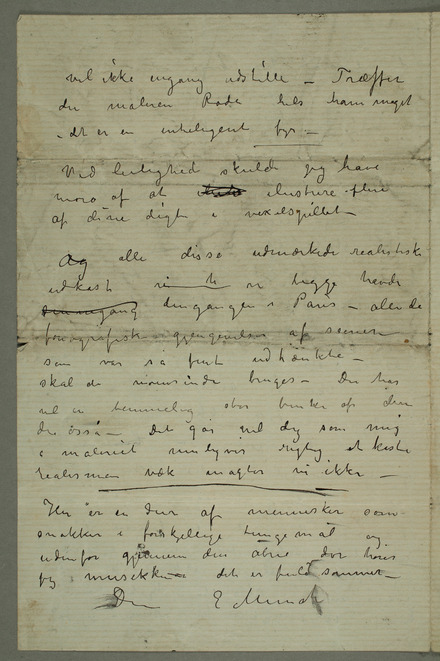 vil ikke engang udstille – Træffer
du maleren Rode hils ham meget
– det er en inteligent fyr –
Ved leilighed skulde jeg have
moro af at ilustrere flere
af dine digt i vexelspillet –
Og alle disse udmærkede realistiske
udkast vi begge havde
dengangen i Paris – alle de
fonografiske gjengivelser af scener
som var så fint udtænkte –
skal de nonsinde bruges – Du har
vel en hemmelig stor bunke af dem
du også – Det går vel dig som mig
i maleriet muligvis rigtig at kaste
realismen væk magter vi ikke –
Her er en dur af mennesker som
snakker i forskjellige tungemål og
udenfor gjennem den åbne dør høres
jeg musikken – det er fuld sommer –
Din E Munch